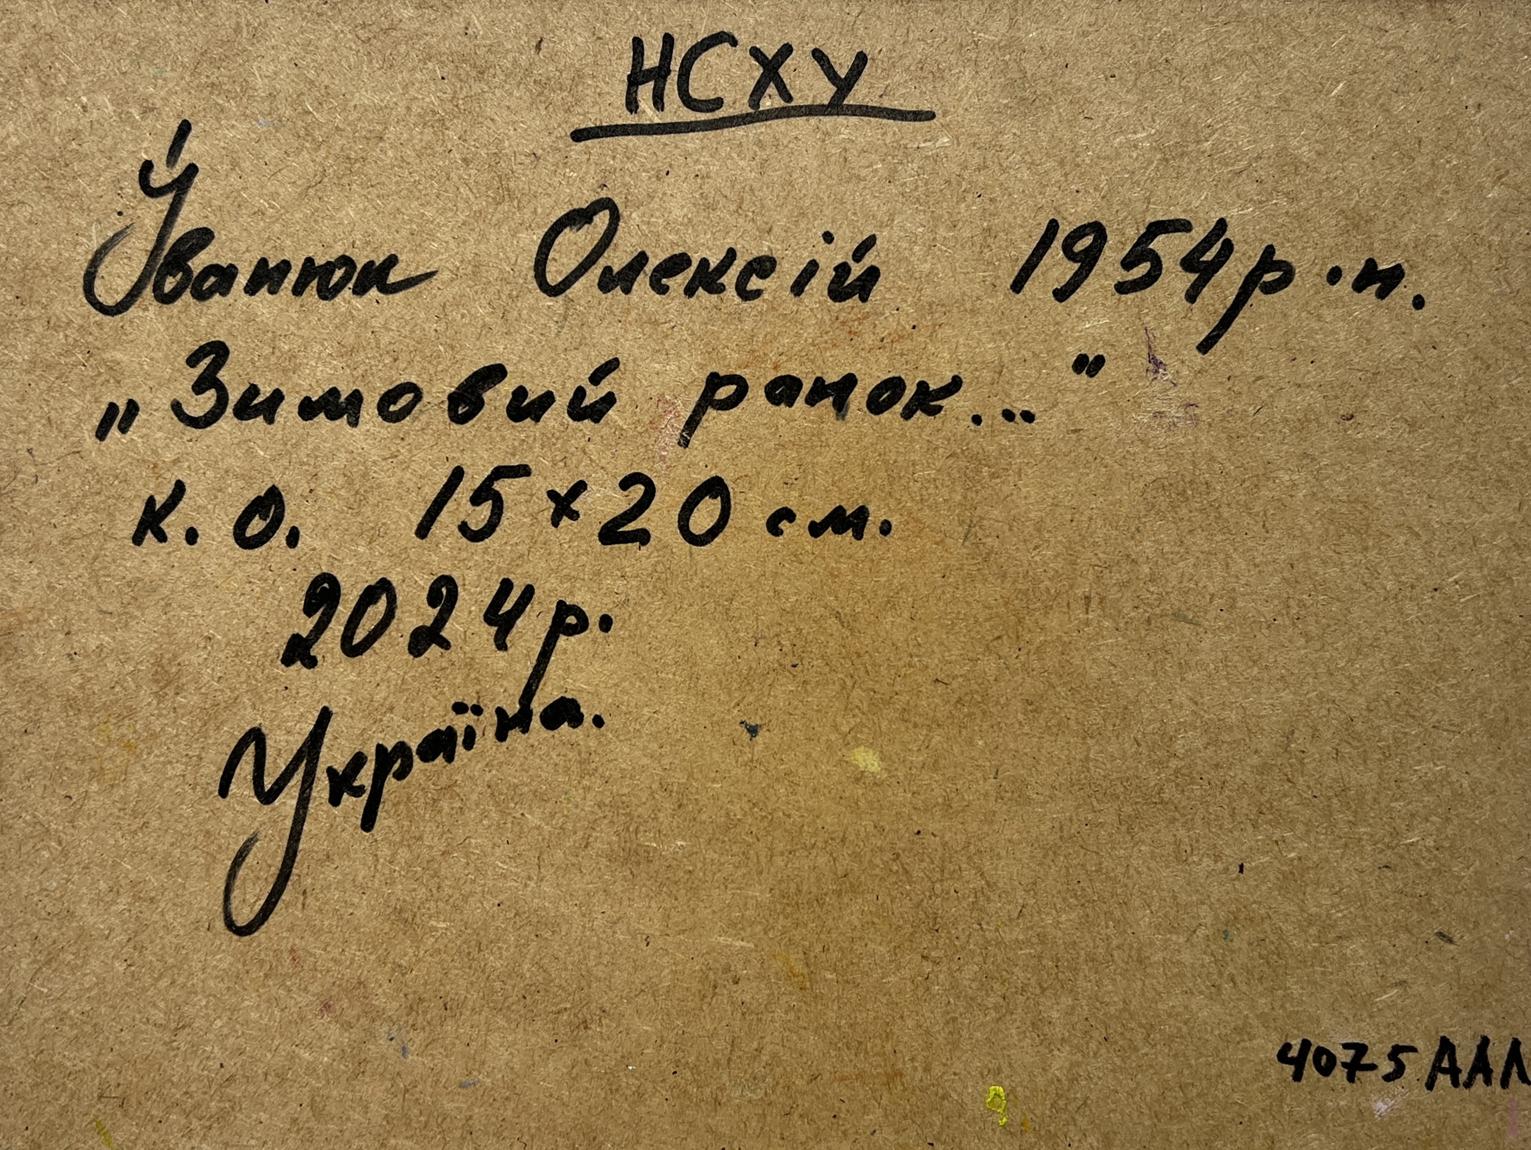 НСХУ
Іванюк Олексій 1954р.н.
„Зимовий ранок..."
к.о. 15×20 см.
2024р.
Україна.
4075 АЛЛ